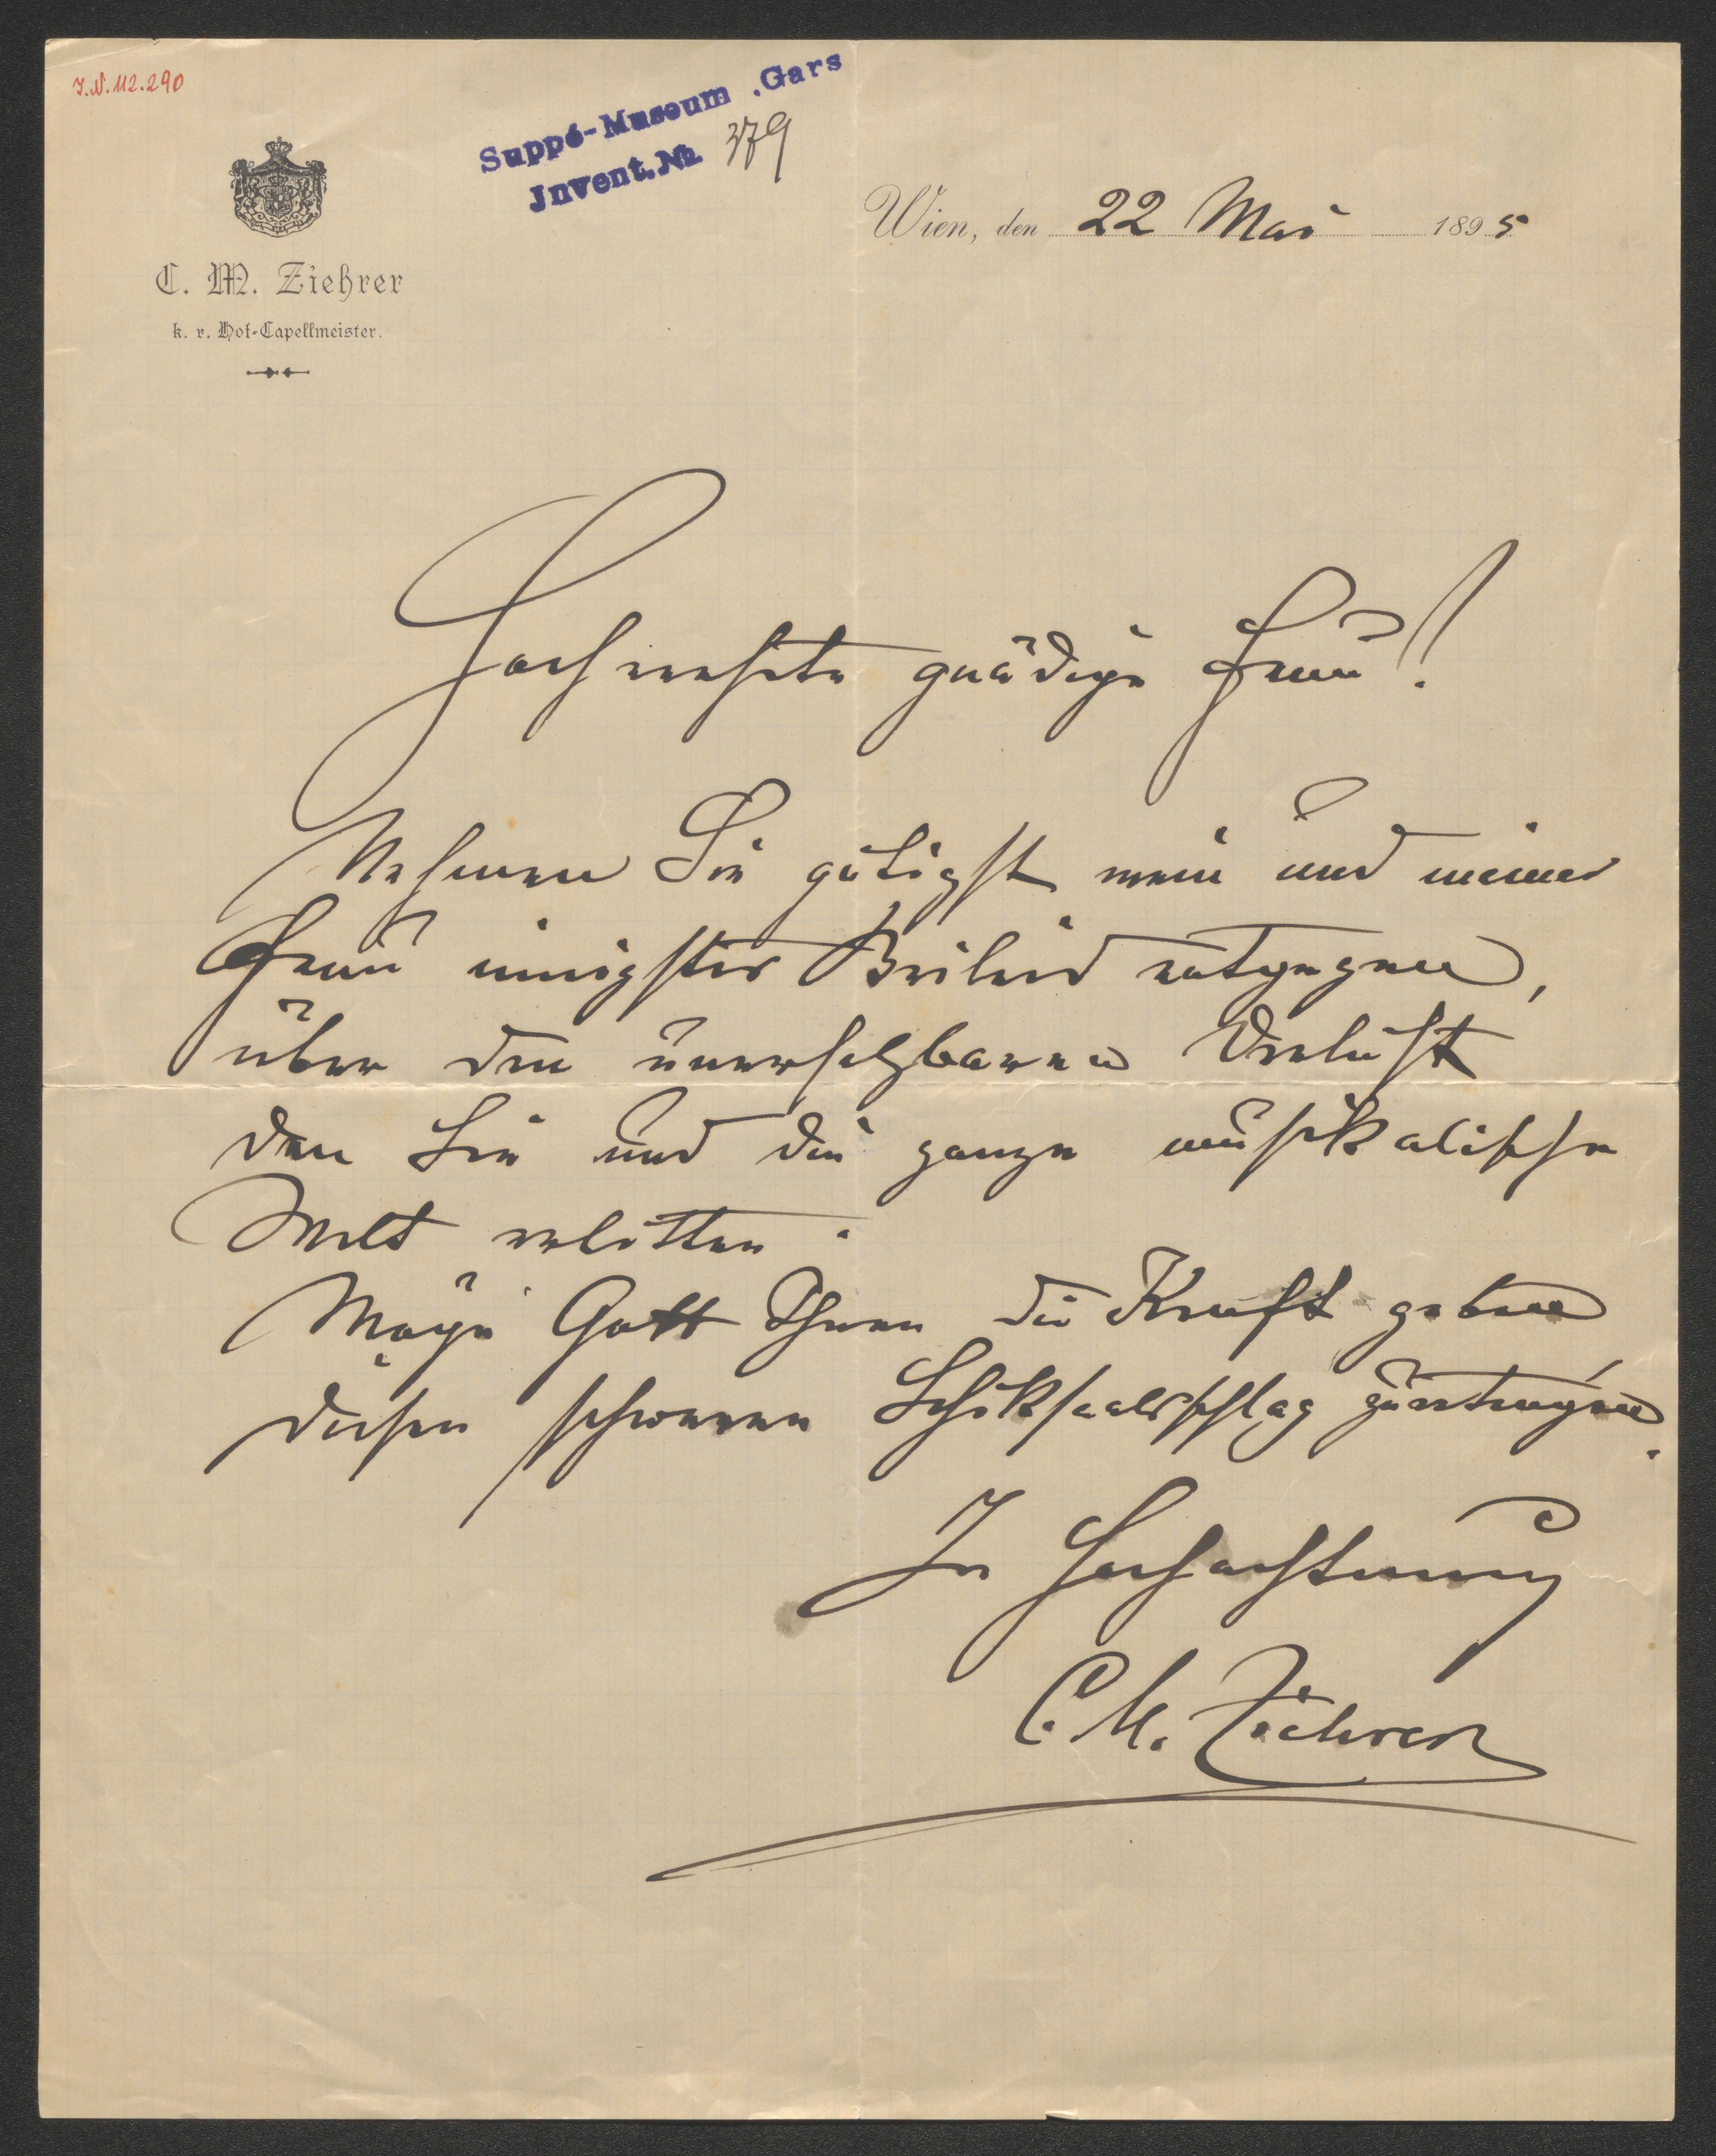 J.N. 112.290
Suppé-Museum Gars
Invent. No 379
C. M. Ziehrer
k. r. Hof-Capellmeister.
Wien, den 22 Mai 1895
Hochverehrte gnädige Frau!
Nehmen Sie gütigst mein und meiner
Frau innigstes Beileid entgegen,
über den unersetzbaren Verlust
den Sie und die ganze musikalische
Welt erlitten.
Möge Gott Ihnen die Kraft geben
diesen schweren Schiksaalsschlag zu ertragen.
In Hochachtung
C. M. Ziehrer